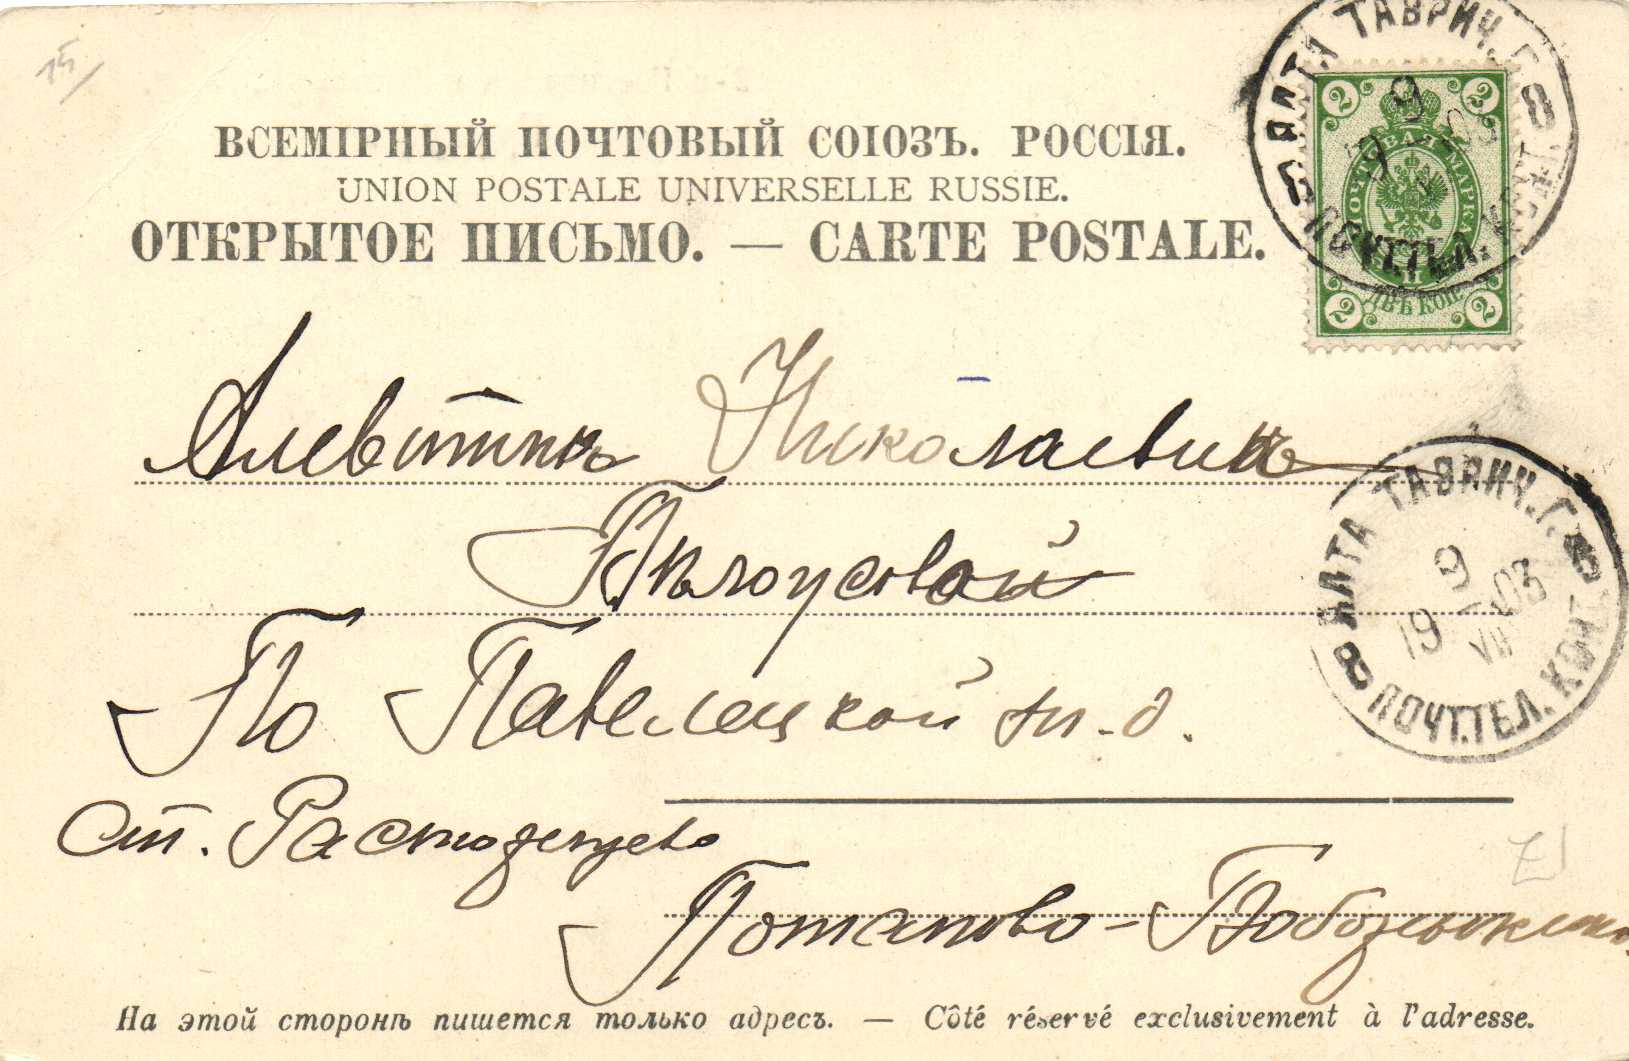 ВСЕМІРНЫЙ ПОЧТОВЫЙ СОЮЗЪ. РОССІЯ.
UNION POSTALE UNIVERSELLE RUSSIE.
ОТКРЫТОЕ ПИСЬМО. — CARTE POSTALE.
ЯЛТА ТАВРИЧ. Г.
8 8
9
19 03
ПОЧТ.ТЕЛ. КОНТ.
2 2
ПОЧТОВАЯ МАРКА
ДВѢ КОП.
2 2
Алевтинѣ Николаевнѣ
Бѣлоусовой
ЯЛТА ТАВРИЧ. Г.
8
9
VII
19 03
ПОЧТ.ТЕЛ. КОНТ.
По Павелецкой ж.-д.
ст. Расторгуево
Потапово-
На этой сторонѣ пишется только адресъ. — Côté réservé exclusivement à l'adresse.